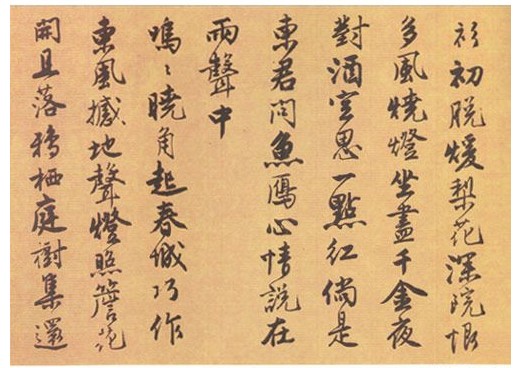 衫初脱煖梨花深院恨
多風燒燈坐盡千金夜
對酒空思一點紅倘是
東君問魚鴈心情説在
雨聲中
嗚〻曉角起春城巧作
東風撼地聲燈照簷花
開且落鴉栖庭樹集還